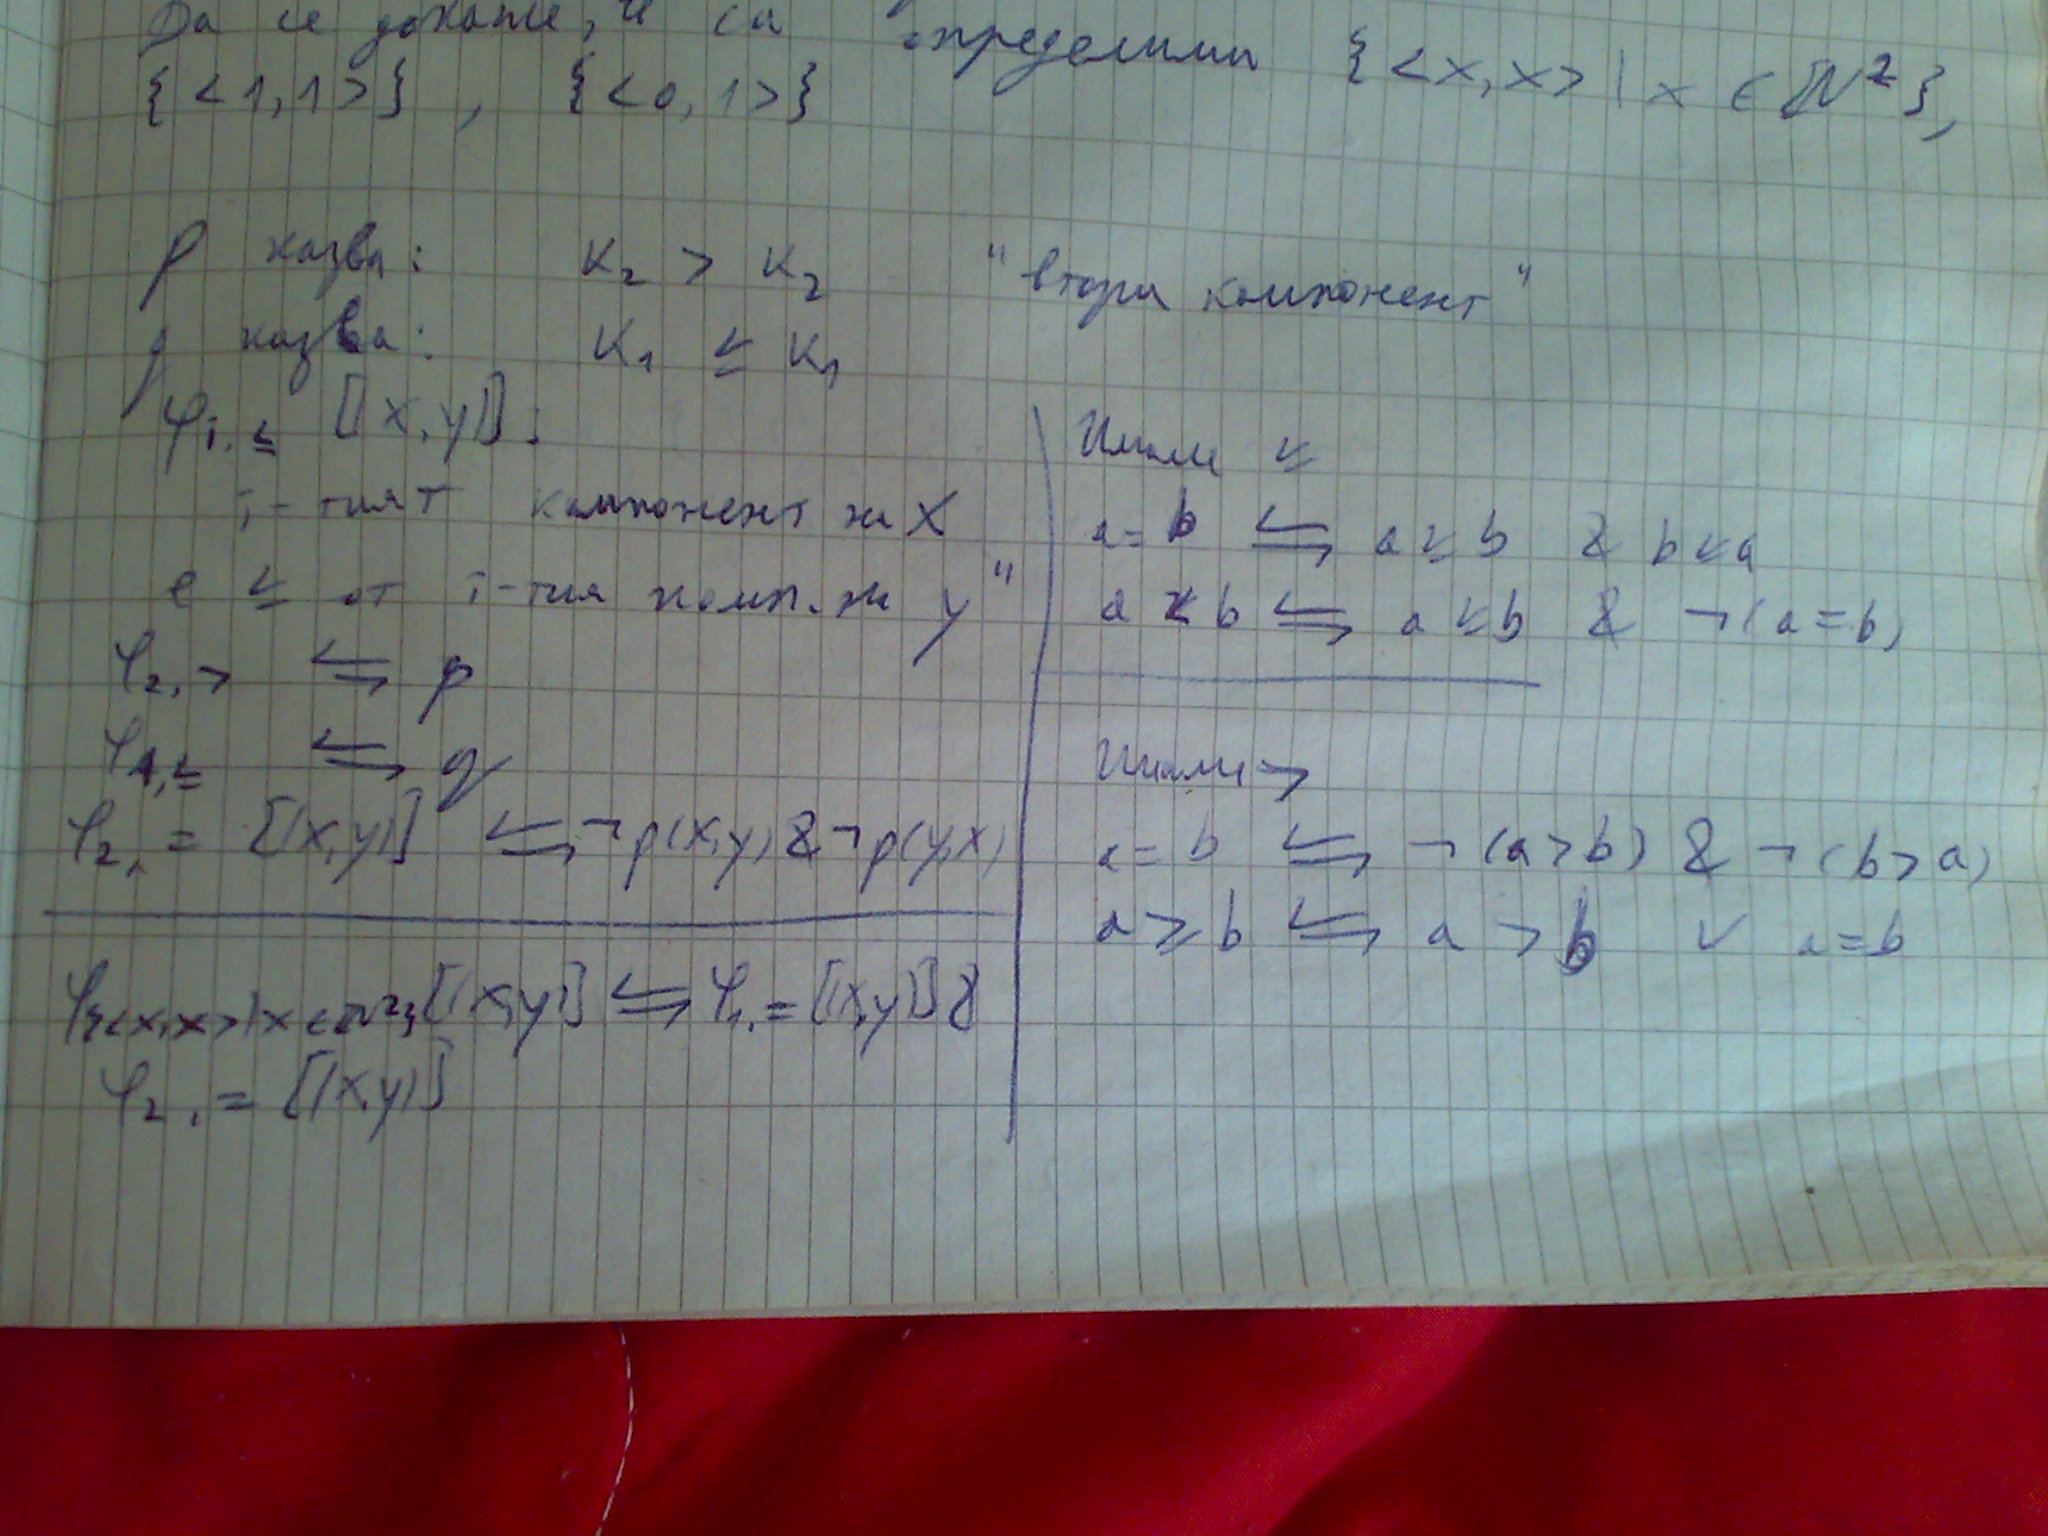 Да се докаже, че са определими {<x,x> | x ∈ ℕ²},
{<1,1>}, {<0,1>}
p казва: K₂ > K₂ "втори компонент"
q казва: K₁ ≤ K₁
φᵢ,≤ [[x,y]]:
i-тият компонент на x
е ≤ от i-тия комп. на y"
φ₂,> ⇆ p
φ₁,≤ ⇆ q
φ₂,= [(x,y)] ⇆ ¬p(x,y) & ¬p(y,x)
φ{<x,x>|x∈ℕ²} [(x,y)] ⇆ φ₁,= [(x,y)] &
φ₂,= [(x,y)]
Имам ≤
a = b ⇆ a ≤ b & b ≤ a
a < b ⇆ a ≤ b & ¬(a = b)
Имам >
a = b ⇆ ¬(a > b) & ¬(b > a)
a ≥ b ⇆ a > b ∨ a = b